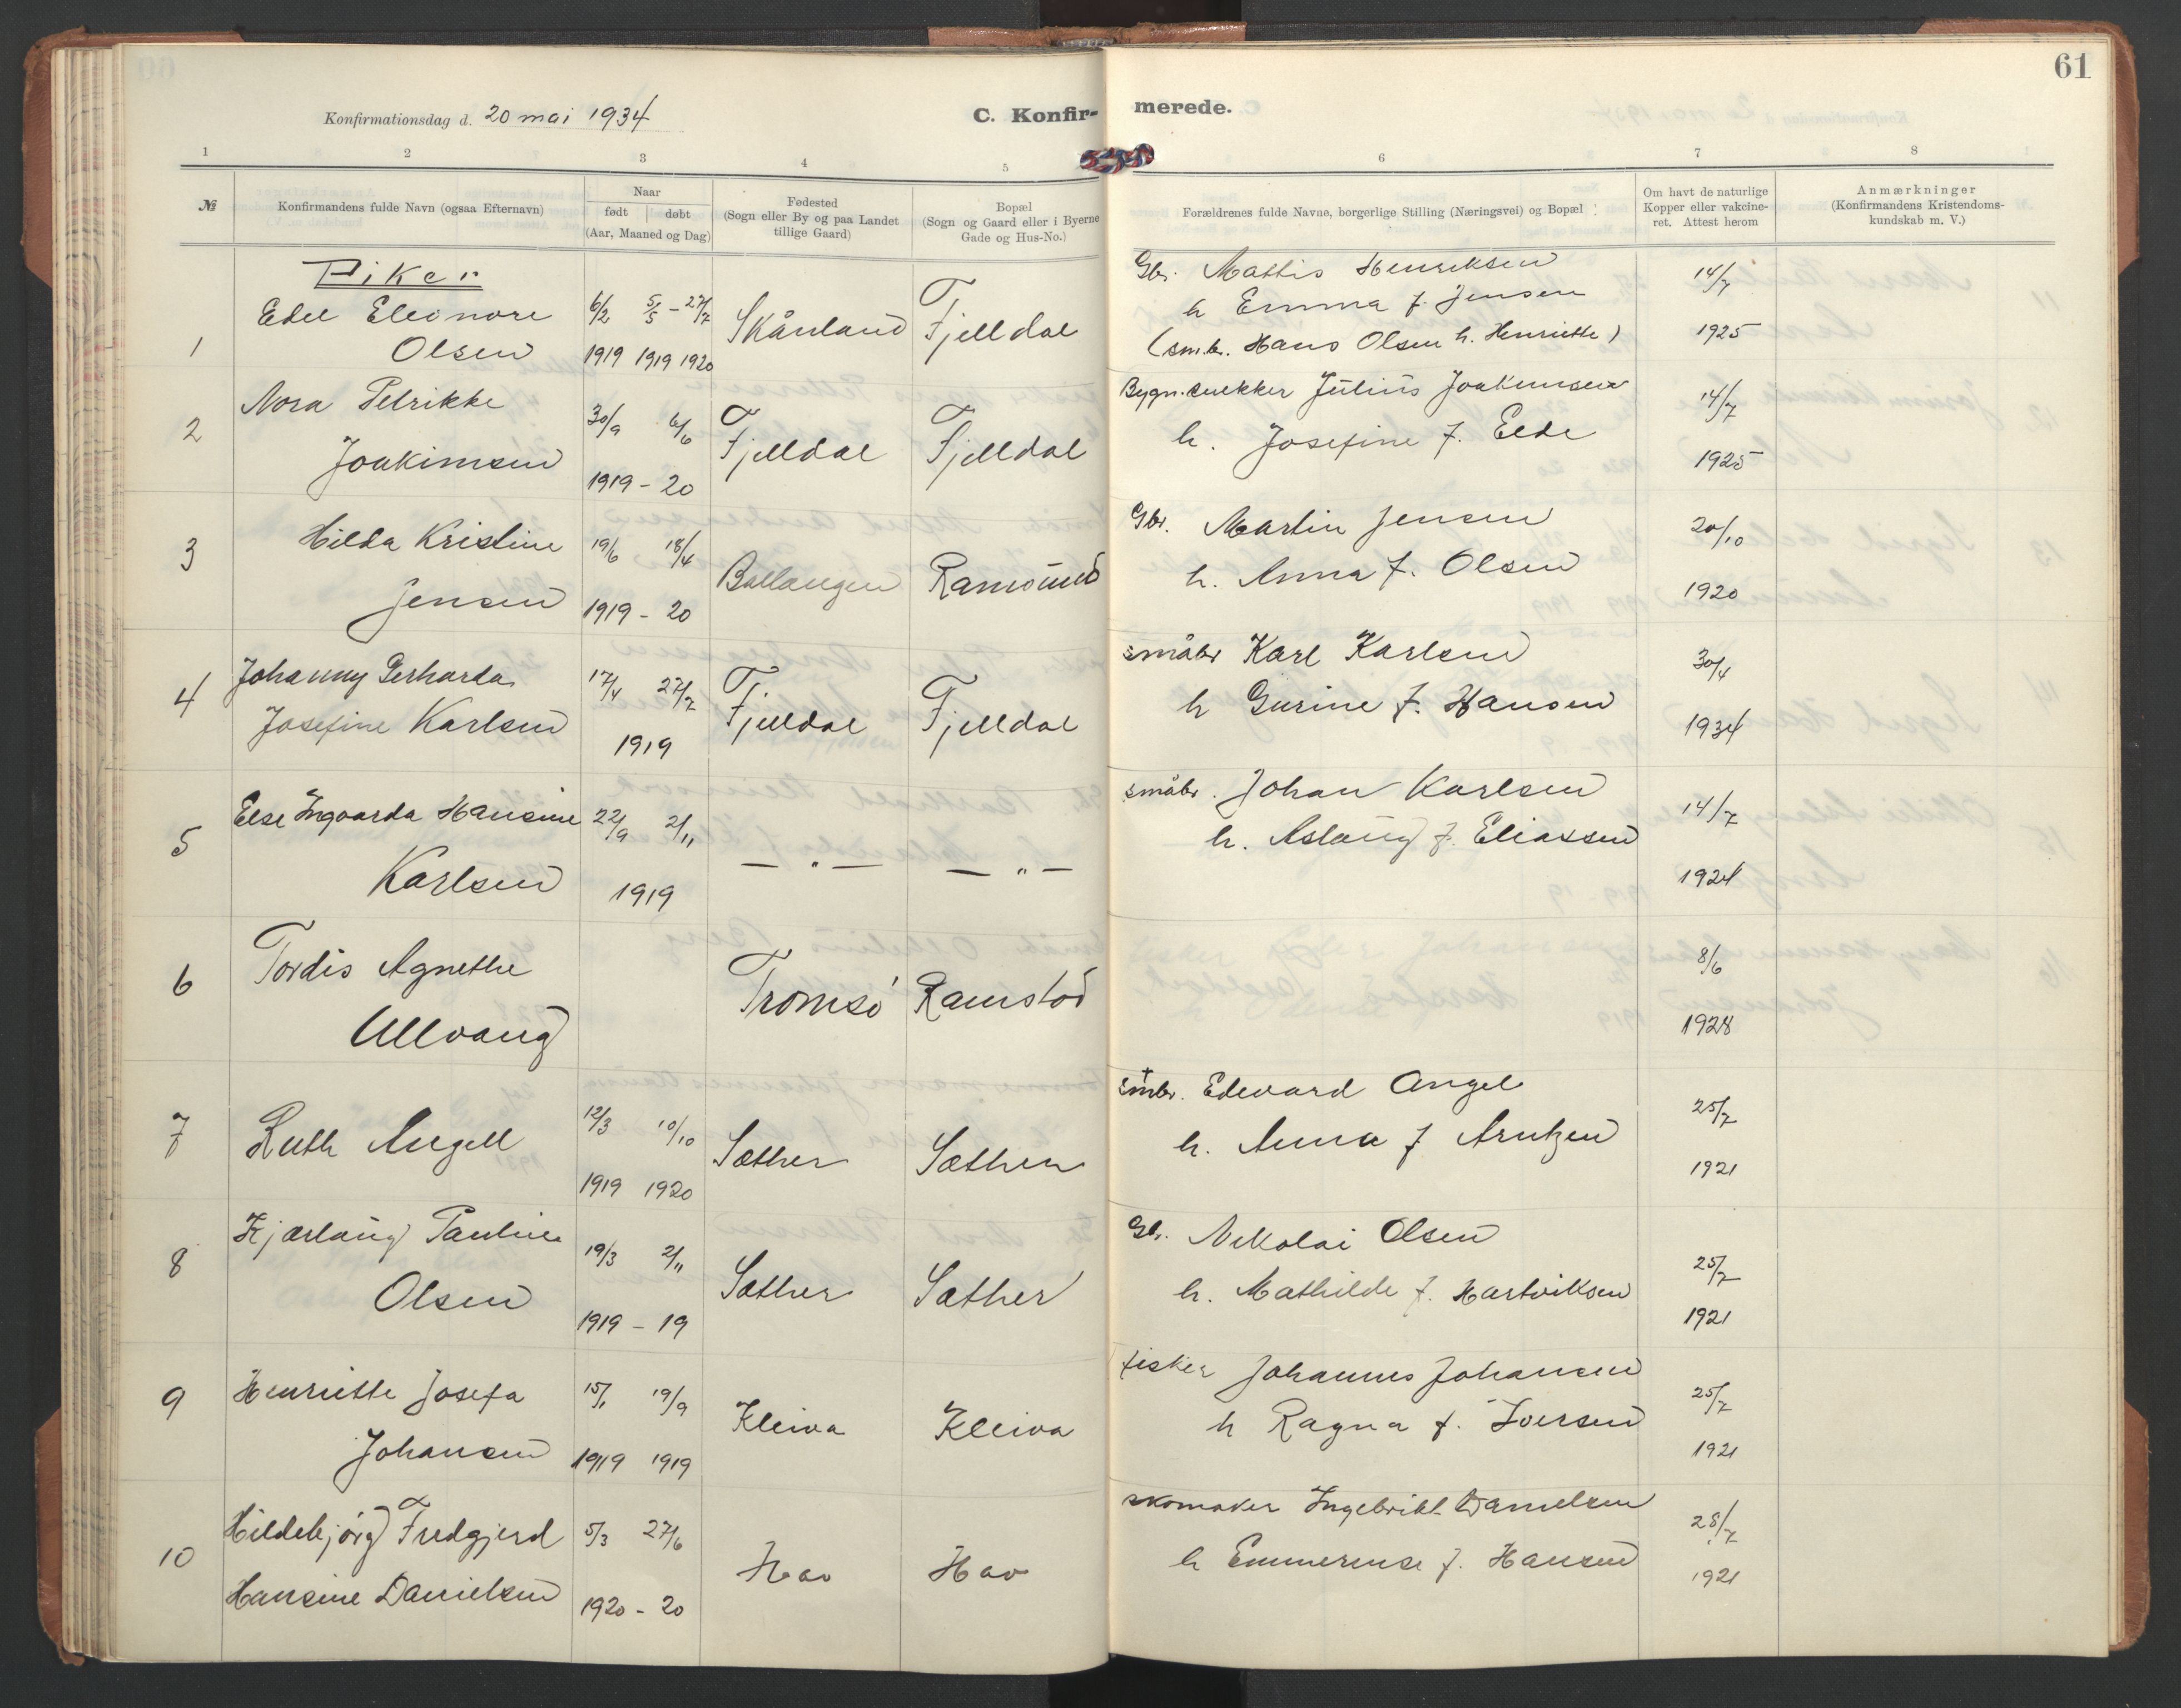 61
Konfirmationsdag d. 20 mai 1934
C. Konfir- merede.
1 2 3 4 5 6 7 8
№
Konfirmandens fulde Navn (ogsaa Efternavn)
Naar
født døbt
(Aar, Maaned og Dag)
Fødested
(Sogn eller By og paa Landet
tillige Gaard)
Bopæl
(Sogn og Gaard eller i Byerne
Gade og Hus-No.)
Forældrenes fulde Navne, borgerlige Stilling (Næringsvei) og Bopæl
Om havt de naturlige
Kopper eller vakcine-
ret. Attest herom
Anmærkninger
(Konfirmandens Kristendoms-
kundskab m. V.)
Piker
1 Edel Eleonore
Olsen
6/2 5/5 - 27/7
1919 1919 1920
Skånland Fjelldal
Gbr. Mattis Henriksen
h Emma f. Jensen
(sm.br. Hans Olsen h. Henriette)
14/7
1925
2 Nora Petrikke
Joakimsen
30/9 6/6
1919 - 20
Fjelldal Fjelldal
Julius Joakimsen
h. Josefine f. Eede
14/7
1925
3 Hilda Kristine
Jensen
19/6 18/4
1919 - 20
Ballangen Ramsund
Gbr. Martin Jensen
h. Anna f. Olsen
20/10
1920
4 Johanny Gerharda
Josefine Karlsen
17/4 27/7
1919
Fjelldal Fjelldal
småbr Karl Karlsen
h Gurine f. Hansen
30/4
1934
5 Else Ingvarda Hansine
Karlsen
22/9 2/11
1919
— " — — " —
småbr. Johan Karlsen
h. Aslaug f. Eliassen
14/7
1924
6 Tordis Agnethe
Ullvang
Tromsö Ramstad
8/6
1928
7 Ruth Angell
12/3 10/10
1919 1920
Sæther Sæther
småbr. Edevard Angel
h. Anna f Arntzen
25/7
1921
8 Kjærlaug Pauline
Olsen
19/3 2/11
1919 - 19
Sæther Sæther
Gbr. Nikolai Olsen
h. Mathilde f. Hartviksen
25/7
1921
9 Henriette Josefa
Johansen
15/1 19/9
1919 1919
Kleiva Kleiva
fisker Johannes Johansen
h Ragna f. Iversen
25/7
1921
10 Hildebjørg Fredgjerd
Hansine Danielsen
5/3 27/6
1920 - 20
Hav Hav
skomaker Ingebrikt Danielsen
h Emmerense f. Hansen
25/7
1921